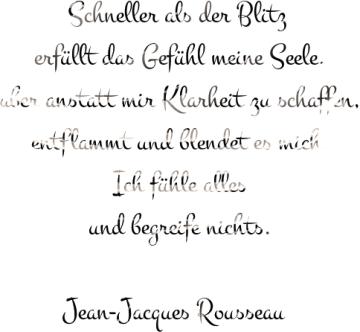 Schneller als der Blitz
erfüllt das Gefühl meine Seele.
aber anstatt mir Klarheit zu schaffen,
entflammt und blendet es mich
Ich fühle alles
und begreife nichts.
Jean-Jacques Rousseau